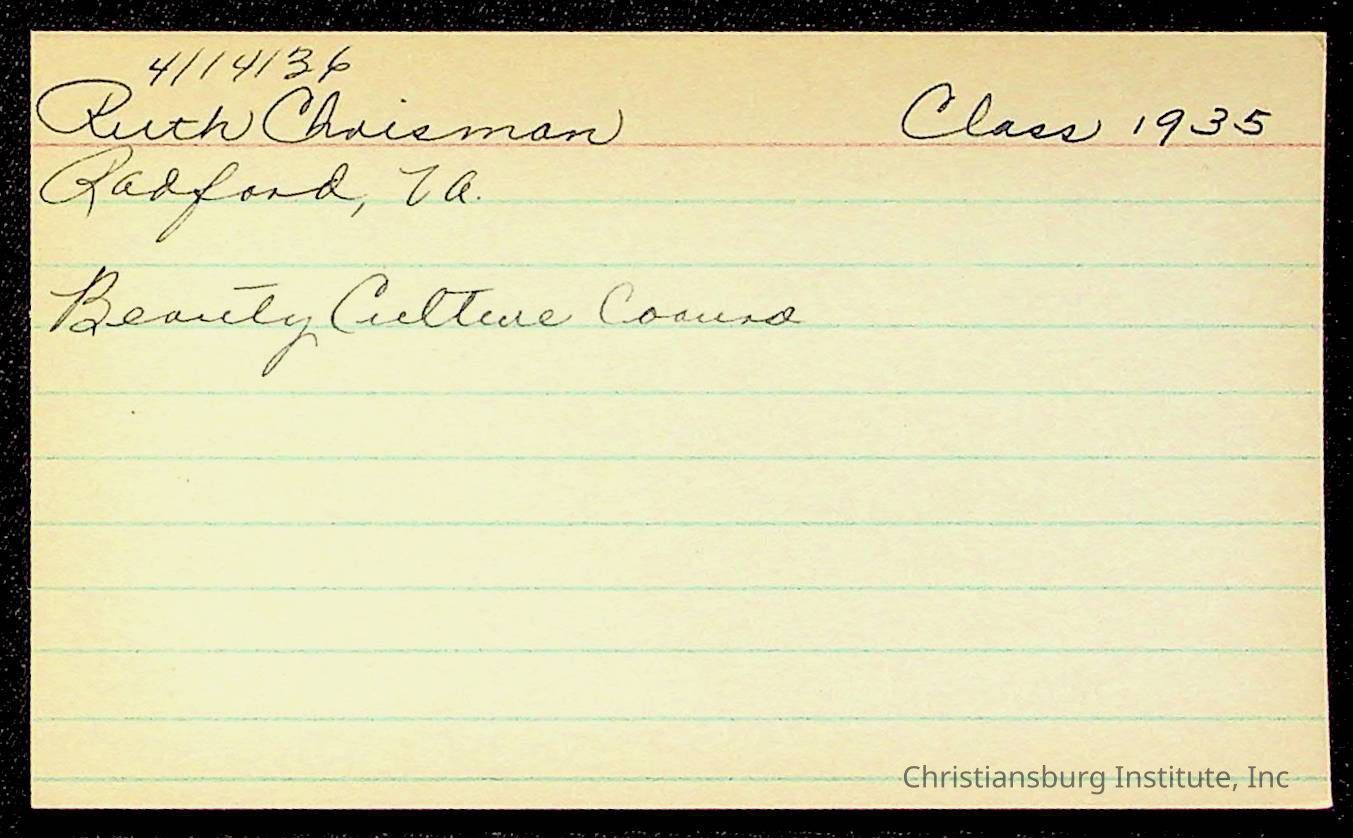 4/14/36
Ruth Chrisman Class 1935
Radford, Va.
Beauty Culture Course
Christiansburg Institute, Inc